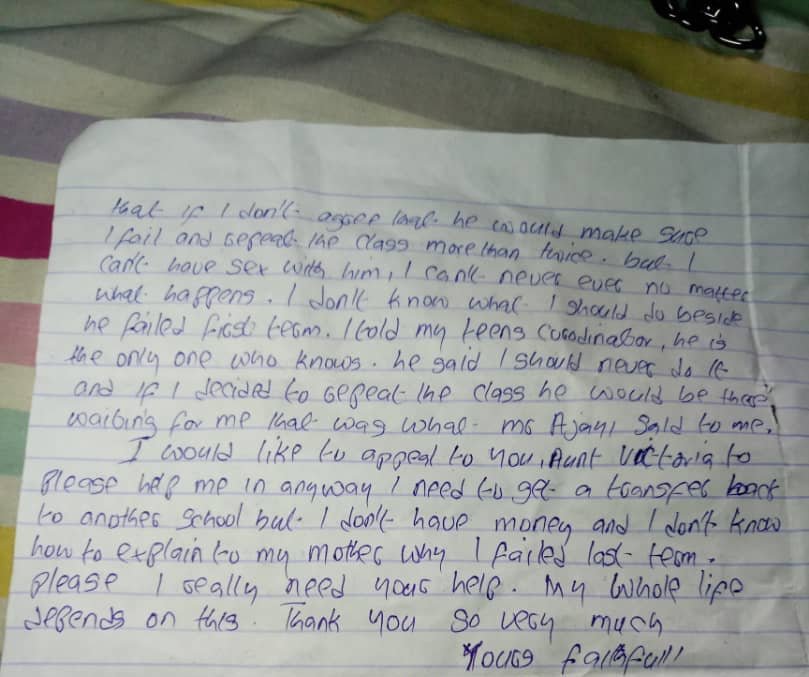 that if I don't agree that he would make sure
I fail and repeat the class more than twice. but I
can't have sex with him, I can't never ever no matter
what happens. I don't know what I should do beside
he failed first term. I told my teens coordinator, he is
the only one who knows. he said I should never do it
and if I decided to repeat the class he would be there
waiting for me that was what mr Ajayi said to me.
I would like to appeal to you, Aunt Victoria to
please help me in anyway I need to get a transfer back
to another school but I don't have money and I don't know
how to explain to my mother why I failed last term.
please I really need your help. My whole life
depends on this. Thank you so very much
Yours faithfull